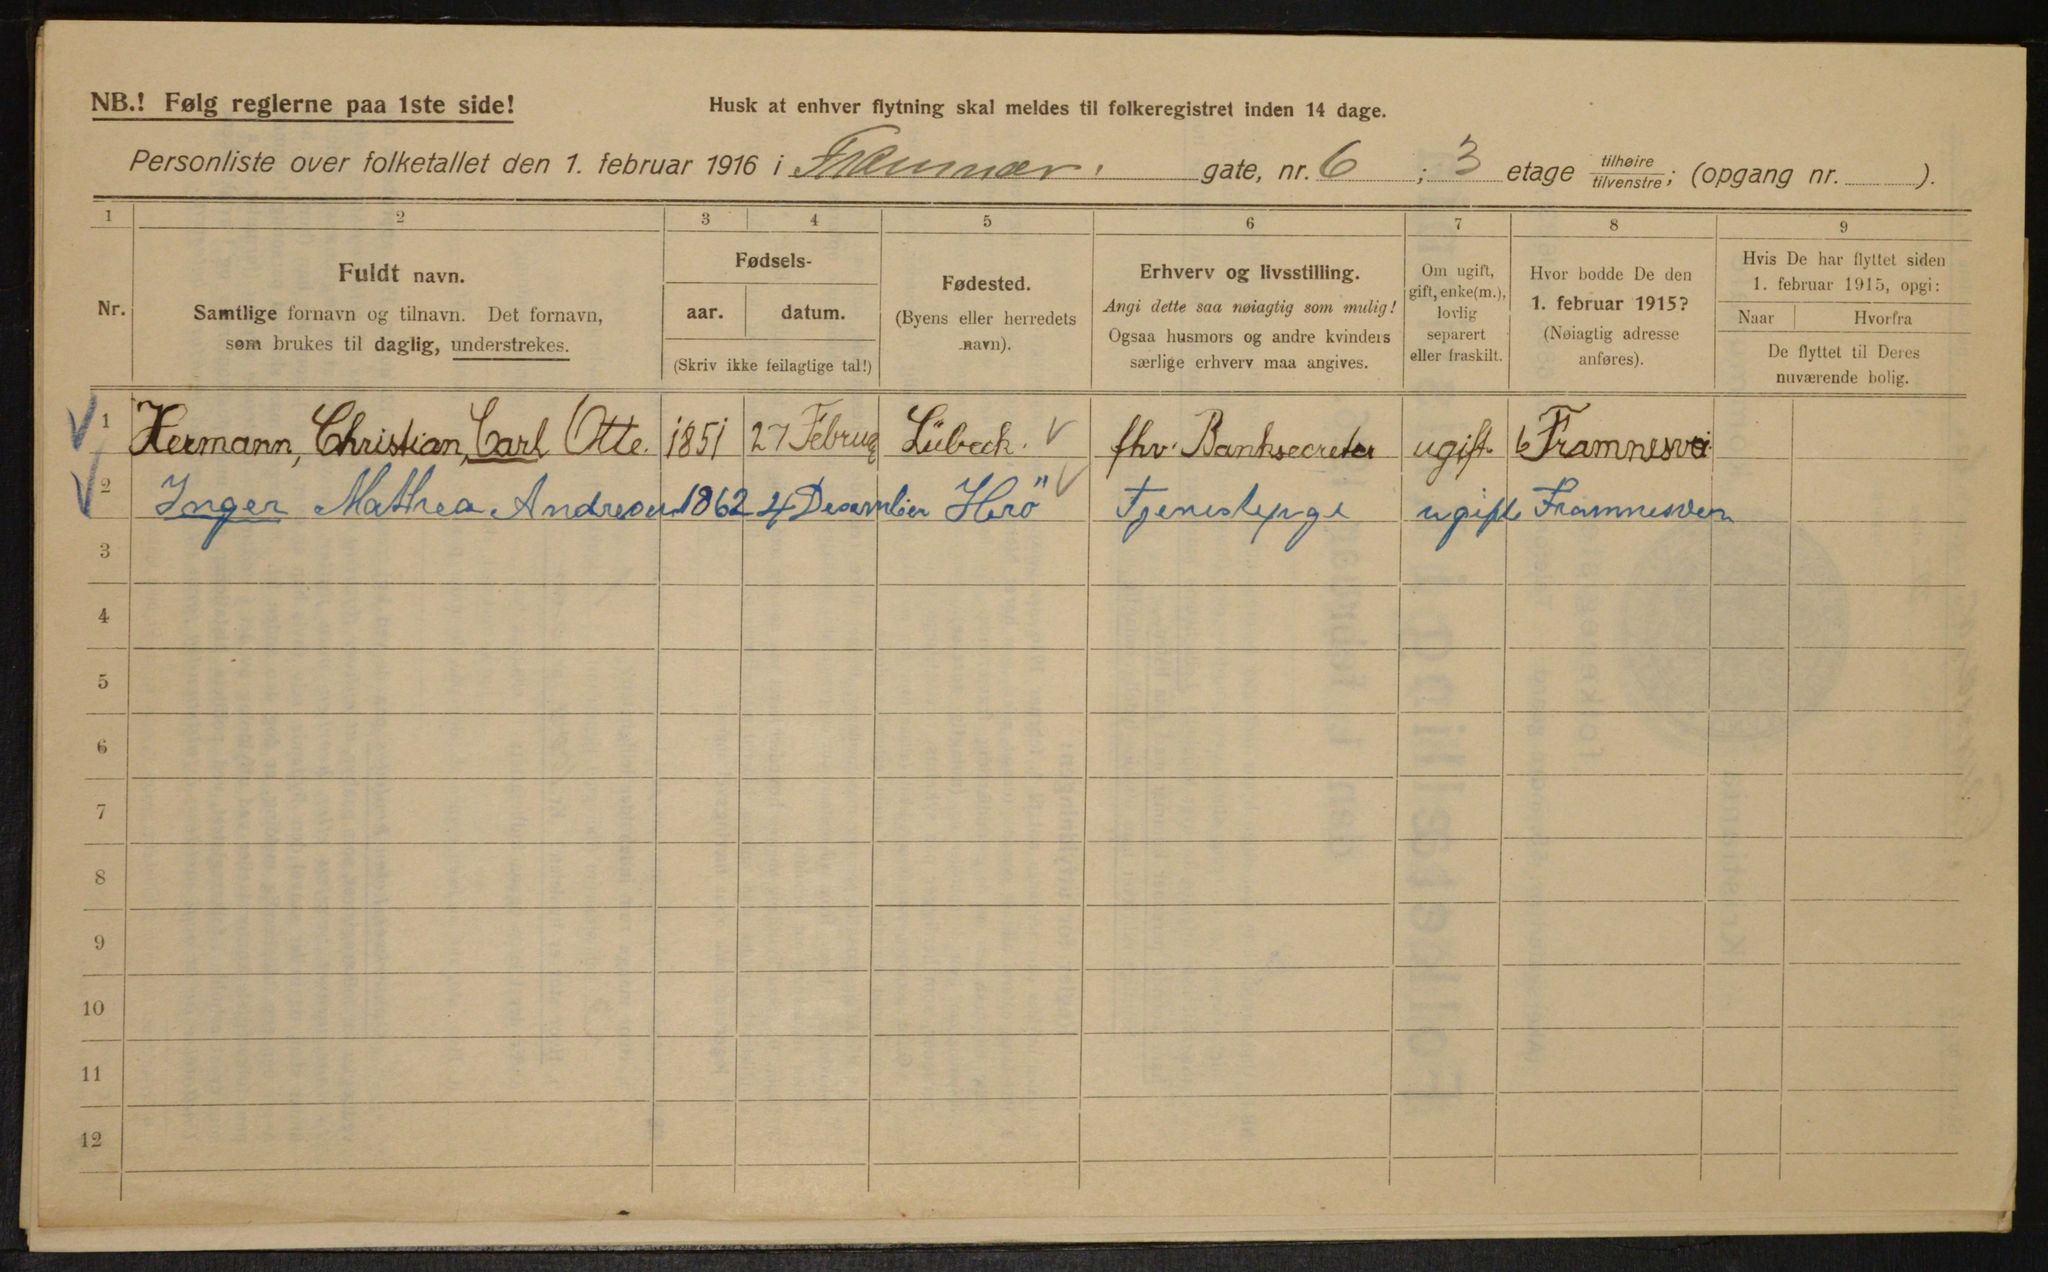 NB.! Følg reglerne paa 1ste side!
Husk at enhver flytning skal meldes til folkeregistret inden 14 dage.
Personliste over folketallet den 1. februar 1916 i gate, nr. 6 ; 3 etage tilhøire/tilvenstre; (opgang nr. ).
1 2 3 4 5 6 7 8 9
Nr.
Fuldt navn.
Samtlige fornavn og tilnavn. Det fornavn,
som brukes til daglig, understrekes.
Fødsels-
aar. datum.
(Skriv ikke feilagtige tal!)
Fødested.
(Byens eller herredets
navn).
Erhverv og livsstilling.
Angi dette saa nøiagtig som mulig!
Ogsaa husmors og andre kvinders
særlige erhverv maa angives.
Om ugift,
gift, enke(m.),
lovlig
separert
eller fraskilt.
Hvor bodde De den
1. februar 1915?
(Nøiagtig adresse
anføres).
Hvis De har flyttet siden
1. februar 1915, opgi:
Naar Hvorfra
De flyttet til Deres
nuværende bolig.
1 Hermann, Christian, Carl Otte. 1851 27 Februa Lübeck. fhv. Banksecretær ugift 6 Framnesvei
2 Inger Mathea Andresen 1862 4 Desember Herö ugift Framnesvein
3
4
5
6
7
8
9
10
11
12